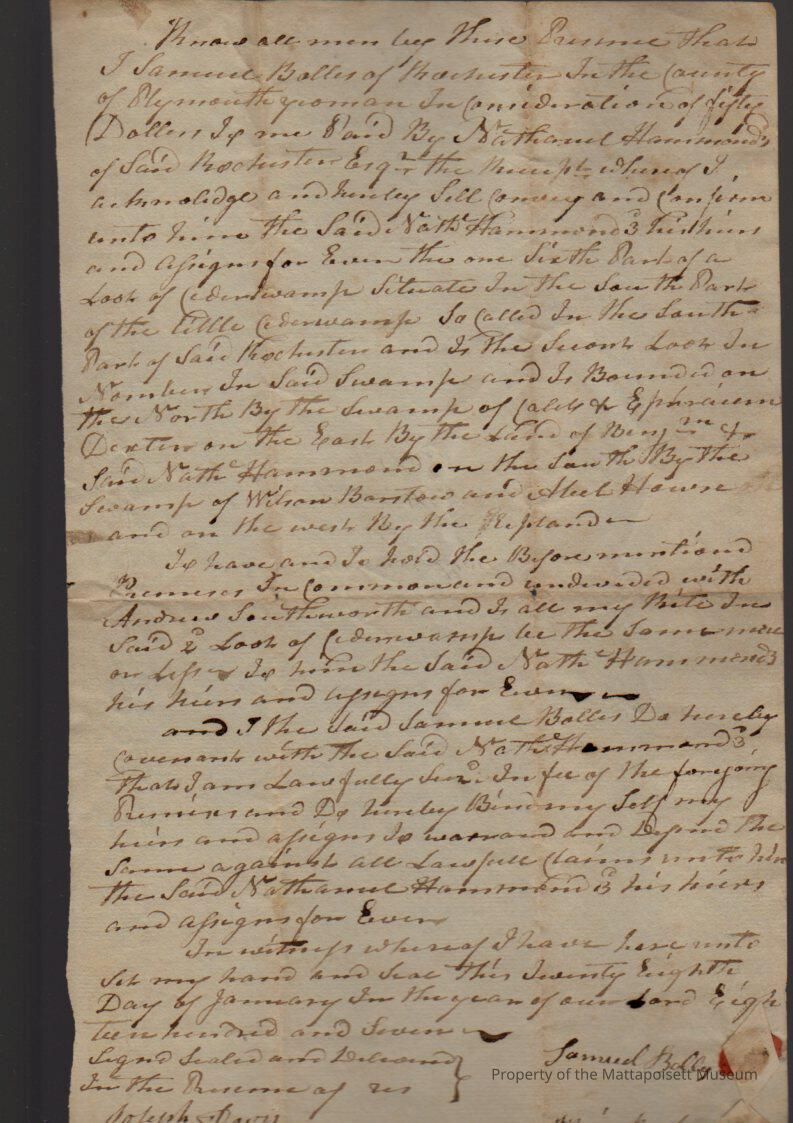 Know all men by these Presence that
I Samuel Bolles of Rochester In the County
of Plymouth yeoman In Consideration of fifty
Dollers To me Paid By Nathanel Hammond 3
of Said Rochester Esqr the Receipt whereof I
acknolidge and hereby Sell Convey and Confirm
unto him the Said Nathl Hammond 3 his hiers
and assigns for Ever the one Sixth Part of a
Loot of Cederswamp Situate In the South Part
of the little Cederswamp So Called In the South
Part of Said Rochester and Is the Second Loot In
Nomber In Said Swamp and Is Bounded on
the North By the Swamp of Caleb & Ephraiem
Dexter on the East By the Land of Benjmn &
Said Nathl Hammond on the South By the
Swamp of Wilson Barstow and Abel Howse
and on the west By the upland
To have and To hold the Before mentiond
Premeses In Common and undevided with
Andrew Southworth and Is all my Rite In
Said 2d Loot of Cederswamp be the Same more
or Less To him the Said Nathl Hammond 3
his hiers and assigns for Ever
and I the Said Samuel Bolles Do hereby
Covenant with the Said Nathl Hammond 3
that I am Lawfully In fee of the forgoing
Premises and Do hereby Bind my Self my
hiers and assigns To warrand and Defend the
Same against all Lawfull Claims unto him
the Said Nathanel Hammond 3 his hiers
and assigns for Ever
In witness whereof I have here unto
Set my hand and Seal this Twenty Eighth
Day of January In the year of our Lord Eigh
teen hundred and Seven
Signd Sealed and Deliverd
In the Presence of us
Samuel Bolles
Joseph Davis
Property of the Mattapoisett Museum